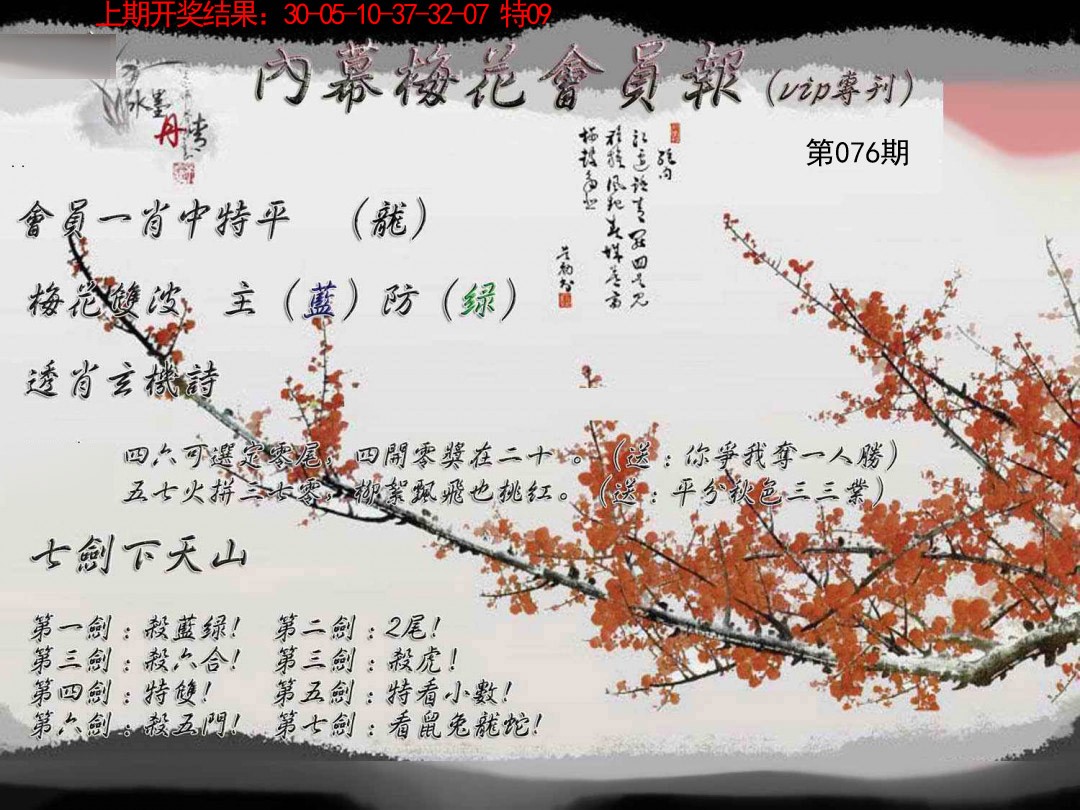 上期开奖结果：30-05-10-37-32-07 特09
內幕梅花會員報（vip專刊）
水墨
丹青
第076期
會員一肖中特平 （龍）
梅花雙波 主（藍）防（绿）
透肖玄機詩
四六可選定零尾，四開零獎在二十。（送：你爭我奪一人勝）
五七火拼三七零，柳絮飄飛也桃红。（送：平分秋色三三業）
七劍下天山
第一劍：殺藍绿！ 第二劍：2尾！
第三劍：殺六合！ 第三劍：殺虎！
第四劍：特雙！ 第五劍：特看小數！
第六劍：殺五門！ 第七劍：看鼠兔龍蛇！